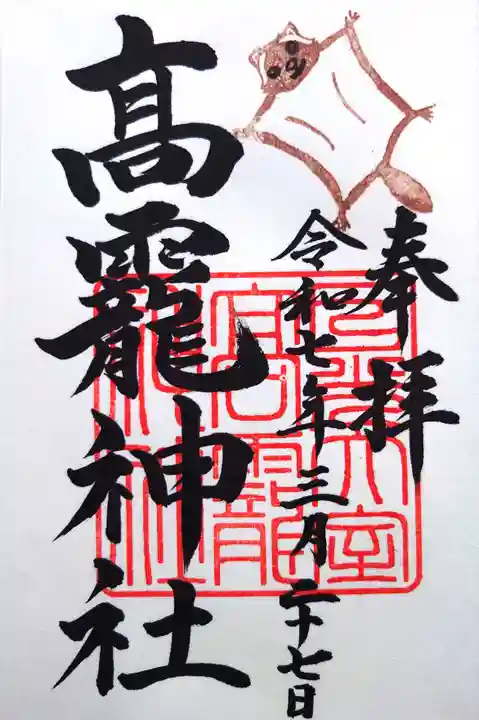 奉拝
令和七年三月二十七日
髙龗神社